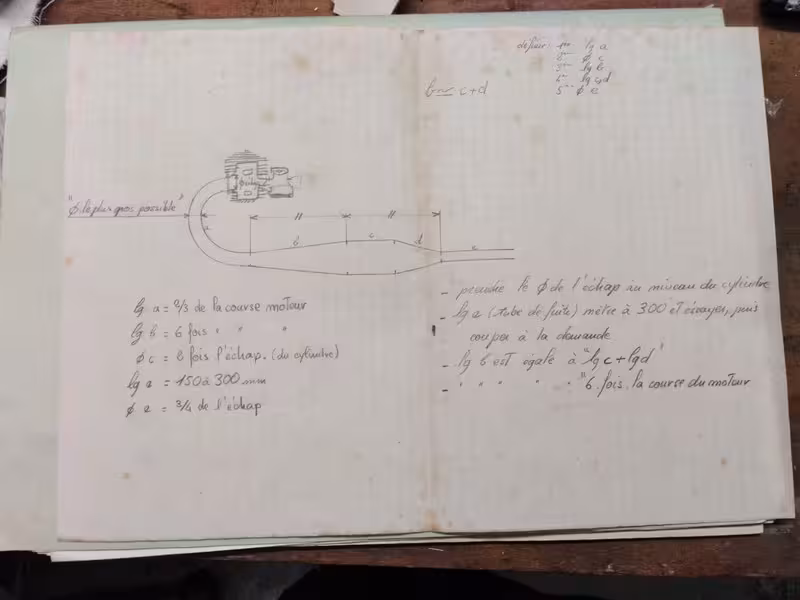 définir: 1er lg a
2ème ϕ c
3ème lg b
4ème lg c+d
5ème ϕ e
b = c+d
"ϕ le plus gros possible"
H H
b c d e
lg a = 2/3 de la course moteur
lg b = 6 fois " " "
ϕ c = 2 fois l'échap. (du cylindre)
lg e = 150 à 300 mm
ϕ e = 3/4 de l'échap
- prendre le ϕ de l'échap au niveau du cylindre
- lg e (tube de fuite) mètre à 300 et essayer, puis
couper à la demande
- lg b est égale à "lg c + lg d"
- " " " " " "6 fois la course du moteur